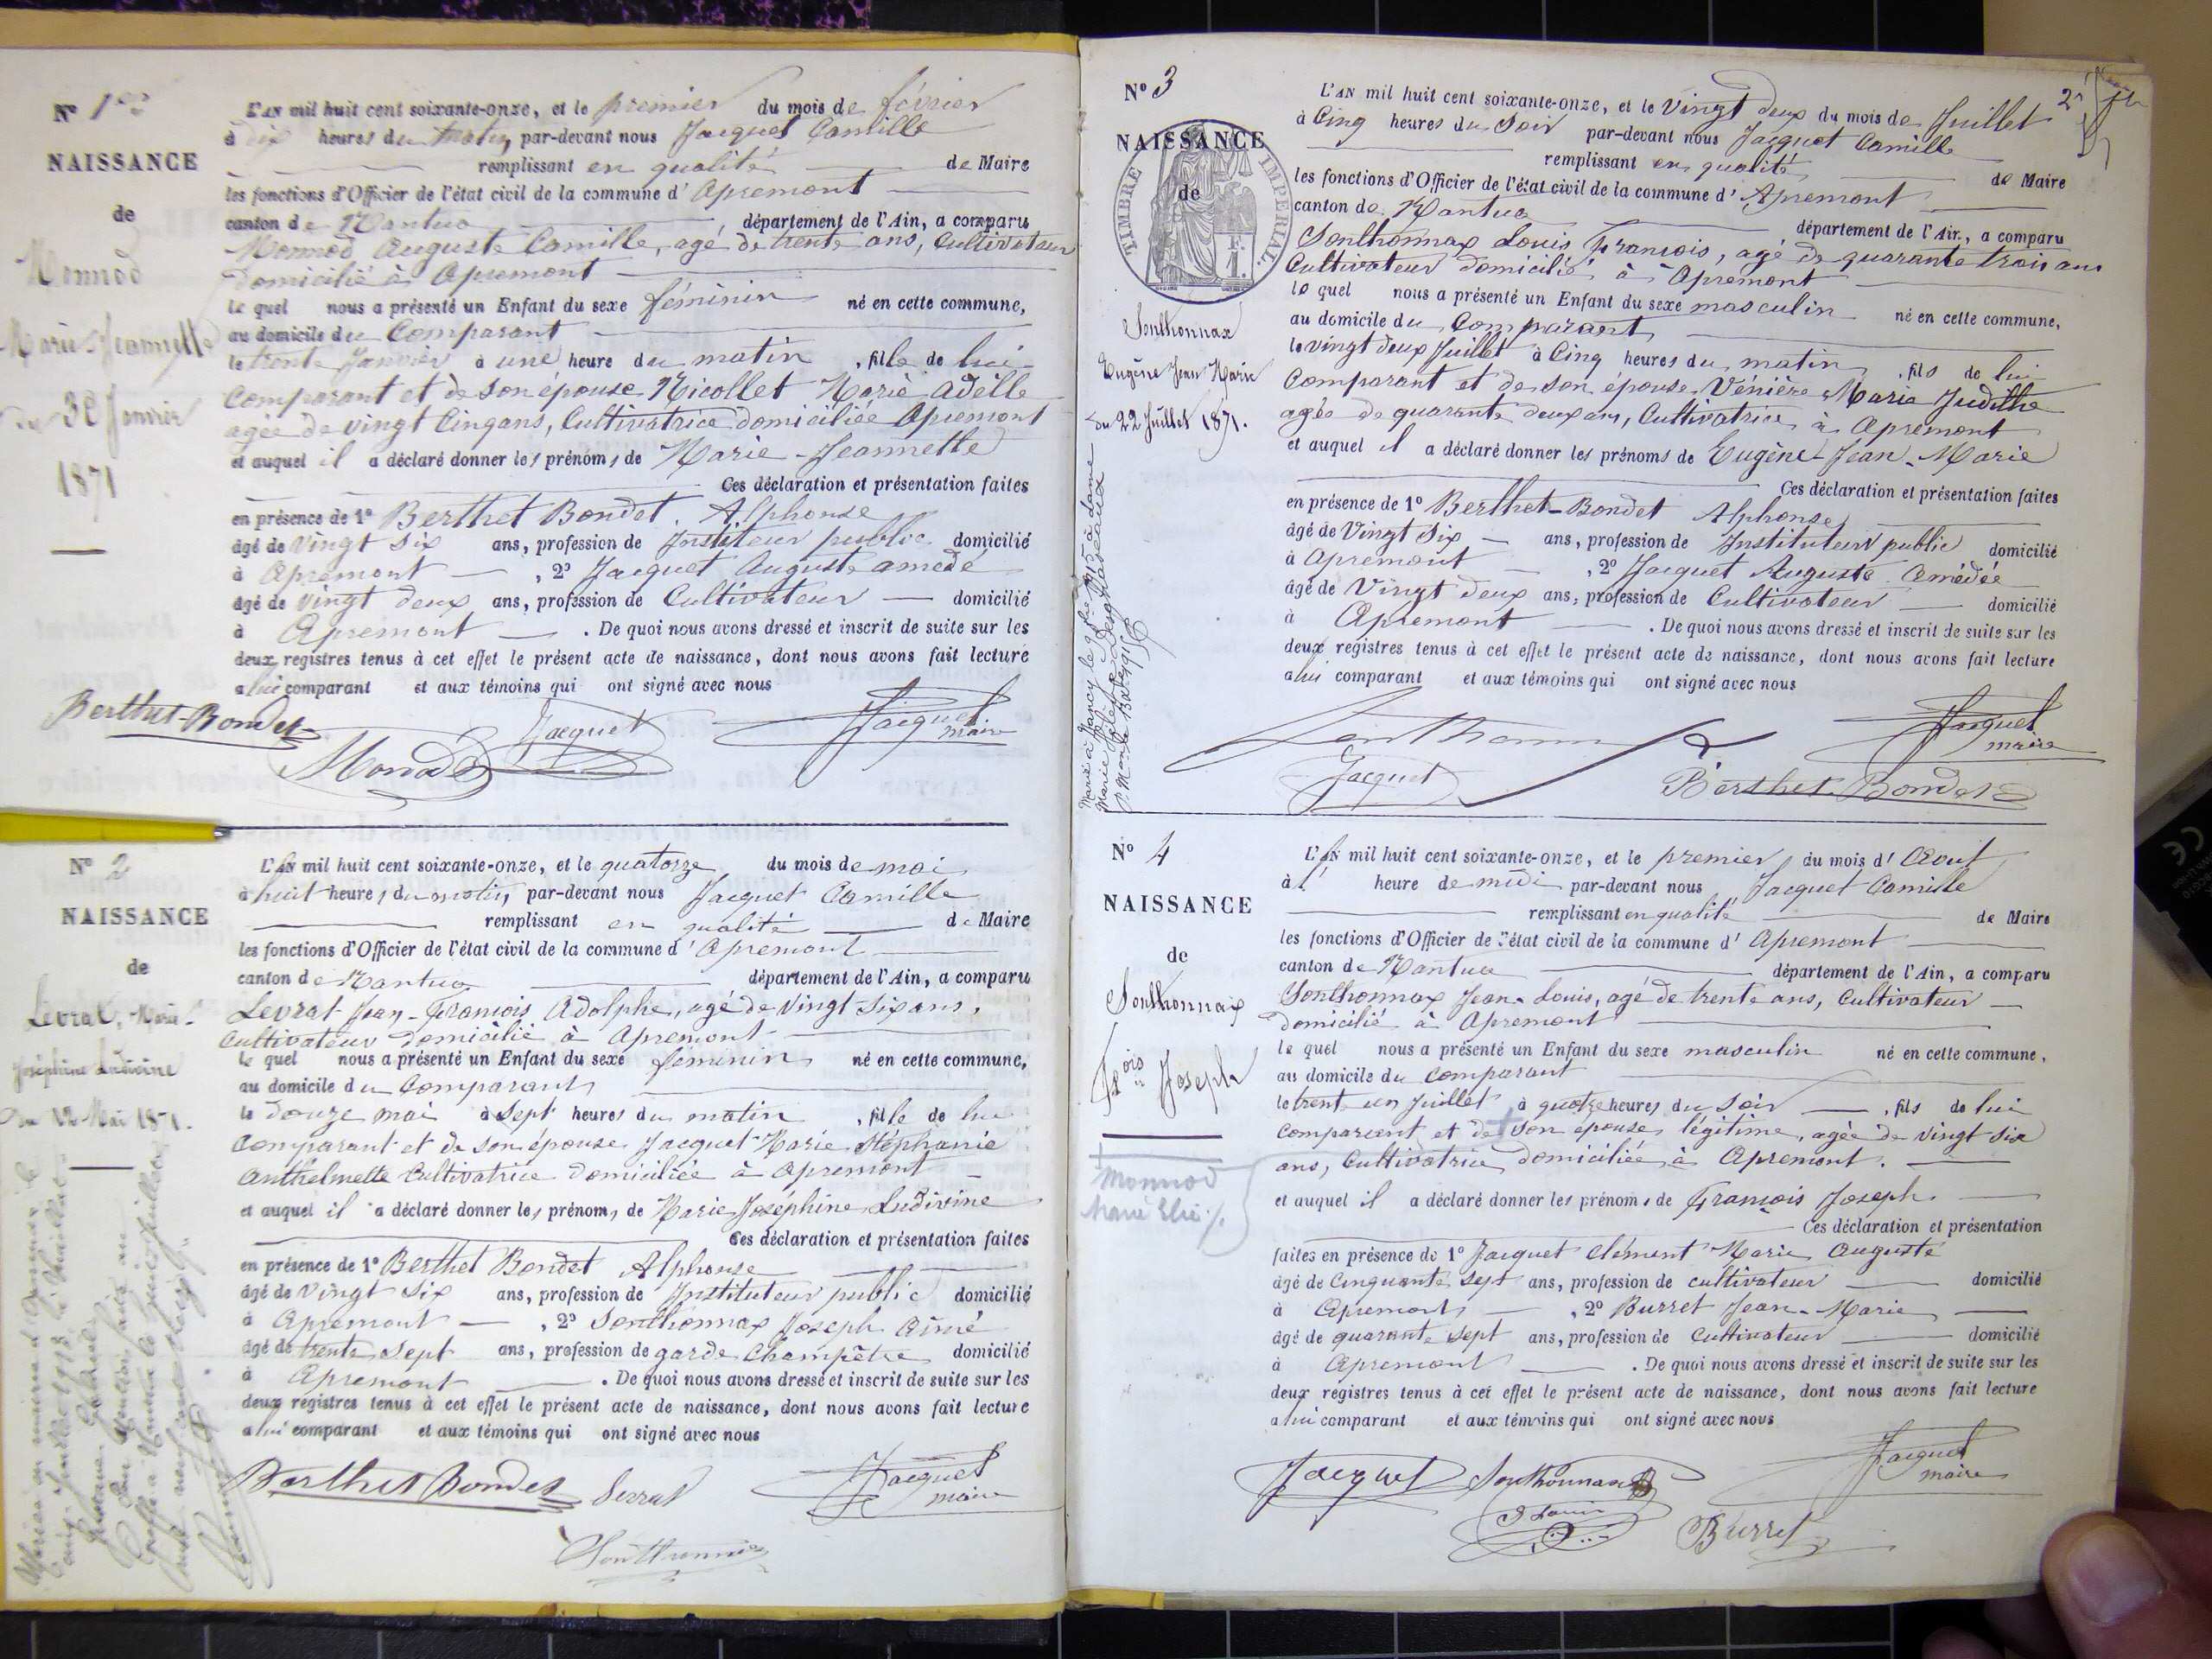 N° 1er
NAISSANCE
de
Monnod
Marie-Jeannette
du 30 Janvier
1871
L'AN mil huit cent soixante-onze, et le premier du mois de février
à dix heures du matin, par-devant nous Jacquet Camille
remplissant en qualité de Maire
les fonctions d'Officier de l'état civil de la commune d'Apremont
canton de Nantua département de l'Ain, a comparu
Monnod Auguste Camille, agé de trente ans, Cultivateur
domicilié à Apremont
le quel nous a présenté un Enfant du sexe féminin né en cette commune,
au domicile du Comparant
le trente Janvier à une heure du matin, fille de lui
comparant et de son épouse Nicollet Marie Adèlle
agée de vingt Cinq ans, Cultivatrice domiciliée Apremont
et auquel il a déclaré donner les prénoms de Marie-Jeannette
Ces déclaration et présentation faites
en présence de 1° Berthet Bondet Alphonse
âgé de Vingt Six ans, profession de Instituteur public domicilié
à Apremont, 2° Jacquet Auguste amédé
âgé de vingt deux ans, profession de Cultivateur domicilié
à Apremont. De quoi nous avons dressé et inscrit de suite sur les
deux registres tenus à cet effet le présent acte de naissance, dont nous avons fait lecture
a lui comparant et aux témoins qui ont signé avec nous
Berthet-Bondet
Monod
Jacquet
Jacquet
maire
N° 2
NAISSANCE
de
Levrat, Marie-
Joséphine Ludivine
du 12 Mai 1871.
L'AN mil huit cent soixante-onze, et le quatorze du mois de mai
à huit heures du matin, par-devant nous Jacquet Camille
remplissant en qualité de Maire
les fonctions d'Officier de l'état civil de la commune d'Apremont
canton de Nantua département de l'Ain, a comparu
Levrat Jean-François Adolphe, agé de vingt-six ans,
Cultivateur domicilié à Apremont
le quel nous a présenté un Enfant du sexe féminin né en cette commune,
au domicile du Comparant
le douze mai à sept heures du matin, fille de lui
comparant et de son épouse Jacquet Marie Stéphanie
Anthelmette Cultivatrice domiciliée à Apremont
et auquel il a déclaré donner les prénoms de Marie Joséphine Ludivine
Ces déclaration et présentation faites
en présence de 1° Berthet Bondet Alphonse
âgé de Vingt six ans, profession de Instituteur public domicilié
à Apremont, 2° Sonthonnax Joseph Aimé
âgé de trente sept ans, profession de garde Champêtre domicilié
à Apremont. De quoi nous avons dressé et inscrit de suite sur les
deux registres tenus à cet effet le présent acte de naissance, dont nous avons fait lecture
a lui comparant et aux témoins qui ont signé avec nous
Berthet Bondet
Levrat
Jacquet
maire
Sonthonnax
2e
N° 3
NAISSANCE
de
TIMBRE IMPERIAL
Sonthonnax
Eugène Jean Marie
du 22 Juillet 1871.
Marié à Nancy le
L'AN mil huit cent soixante-onze, et le Vingt deux du mois de Juillet
à Cinq heures du Soir par-devant nous Jacquet Camille
remplissant en qualité de Maire
les fonctions d'Officier de l'état civil de la commune d'Apremont
canton de Nantua département de l'Ain, a comparu
Sonthonnax Louis François, agé de quarante trois ans
Cultivateur domicilié à Apremont
le quel nous a présenté un Enfant du sexe masculin né en cette commune,
au domicile du Comparant
le vingt deux Juillet à Cinq heures du matin, fils de lui
Comparant et de son épouse Vénière Marie Judithe
agée de quarante deux ans, Cultivatrice à Apremont
et auquel il a déclaré donner les prénoms de Eugène Jean-Marie
Ces déclaration et présentation faites
en présence de 1° Berthet-Bondet Alphonse
âgé de Vingt Six ans, profession de Instituteur public domicilié
à Apremont, 2° Jacquet Auguste Amédée
âgé de Vingt deux ans, profession de Cultivateur domicilié
à Apremont. De quoi nous avons dressé et inscrit de suite sur les
deux registres tenus à cet effet le présent acte de naissance, dont nous avons fait lecture
a lui comparant et aux témoins qui ont signé avec nous
Jacquet
Jacquet
maire
Berthet Bondet
N° 4
NAISSANCE
de
Sonthonnax
Fçois Joseph
Monnod
Marie Elie
L'AN mil huit cent soixante-onze, et le premier du mois d'Aout
à l' heure de midi par-devant nous Jacquet Camille
remplissant en qualité de Maire
les fonctions d'Officier de l'état civil de la commune d'Apremont
canton de Nantua département de l'Ain, a comparu
Sonthonnax Jean-Louis, agé de trente ans, Cultivateur
domicilié à Apremont
le quel nous a présenté un Enfant du sexe masculin né en cette commune,
au domicile du Comparant
le trente un Juillet à quatre heures du Soir, fils de lui
comparant et de son épouse légitime, agée de vingt six
ans, Cultivatrice domiciliée à Apremont.
et auquel il a déclaré donner les prénoms de François Joseph
Ces déclaration et présentation
faites en présence de 1° Jacquet Clément Marie Auguste
âgé de Cinquante sept ans, profession de cultivateur domicilié
à Apremont, 2° Burret Jean-Marie
âgé de quarante sept ans, profession de Cultivateur domicilié
à Apremont. De quoi nous avons dressé et inscrit de suite sur les
deux registres tenus à cet effet le présent acte de naissance, dont nous avons fait lecture
a lui comparant et aux témoins qui ont signé avec nous
Jacquet
Sonthonnax
J Louis
Jacquet
maire
Burret